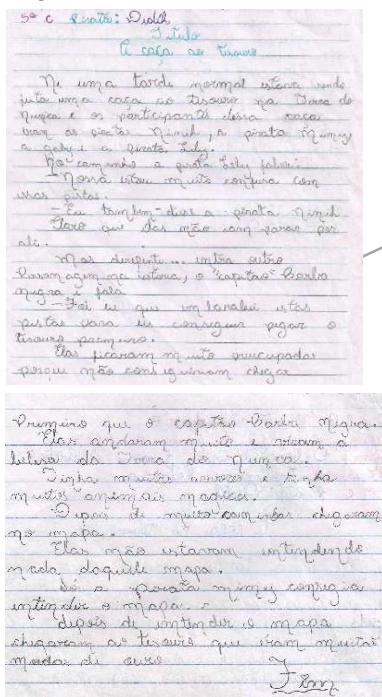 5º C Pirata: Didih
Titulo
A caça ao tisouro
Ne uma tarde normal estava sendo
juta uma caça ao tisouro na Terra do
Nunca e os participantes dessa caca
eram as piratas Nimih, a pirata Mimiy
a gaby e a pirata Lily.
No caminho a pirata Lily falou:
- Nossa estou muito confusa com
essas pistas.
- Eu tambem - disse a pirata Nimih
Claro que elas não iam parar por
ali.
Mas derepente... entra outro
na istoria, o "capitão" Barba
negra e fala
- Foi eu que em baralhei estas
pistas para eu conseguir pegar o
tisouro primeiro.
Elas ficaram muito preucupadas
porque não conseguiriam chegar
Primeiro que o capitão Barba Negra.
Elas andaram muito e viram a
belesa da Terra do Nunca.
Tinha muitas arvores e tinha
muitos animais magicos.
Depois de muito caminhar chegaram
no mapa.
Elas não estavam entendendo
nada daquele mapa.
Só a pirata mimiy conseguia
entender o mapa
depois de entender o mapa
chegaram ao tesouro que eram muitas
moedas de ouro
Fim